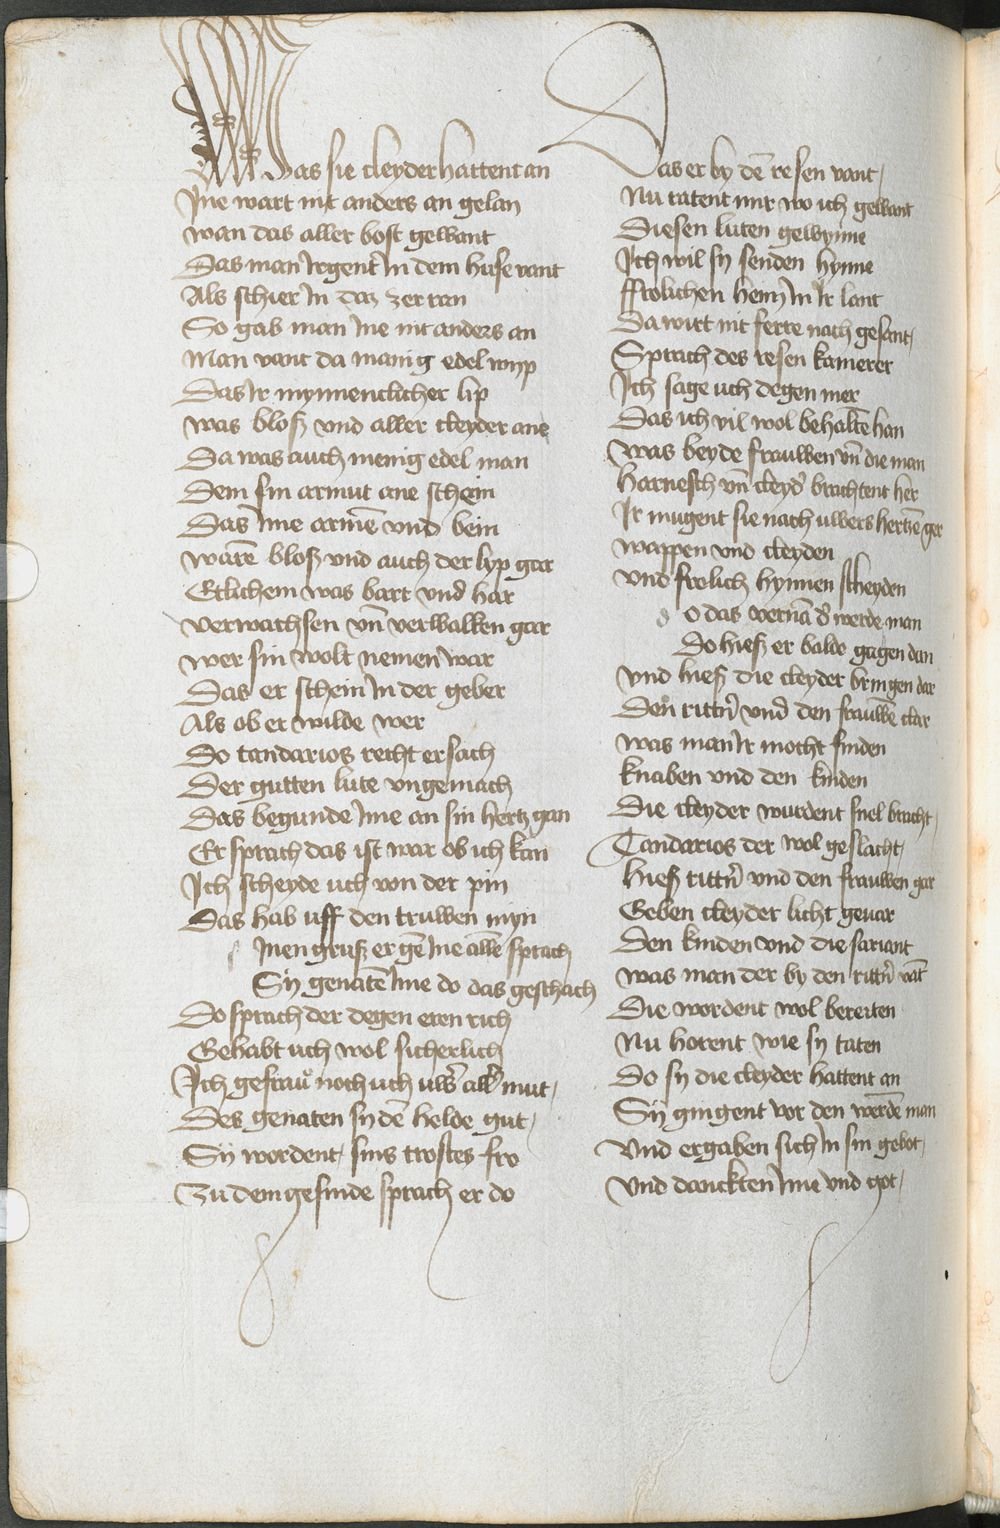 Was sie cleyder hattent an
Jne wart nit anders an gelan
wan das aller bost gewant
Das man irgent in dem huse vant
Als schier in daz zerran
So gab man ine nit anders an
Man vant da manig edel wyp
Das ir mynnenclicher lip
was bloß vnd aller cleyder ane
Da was auch menig edel man
Dem sin armut ane schein
Das ime armē vnd bein
warē bloß vnd auch der lyp gar
Etlichem was bart vnd har
verwachsen vn̄ verwalken gar
wer sin wolt nemen war
Das er schein in der geber
Als ob er wilde wer
Do tandarios recht ersach
Der gutten lute vngemach
Das begunde ime an sin hertz gan
Er sprach das ist war ob ich kan
Jch scheyde uch von der pin
Das hab uff den truwen myn
inen gruß er gē ine allē sprach
Sy genatē ime do das geschach
Do sprach der degen eren rich
Gehabt uch wol sicherlich
Jch gefrau noch uch uwˀ allˀ mut
Des genaten sy dē helde gut
Sy wordent sins trostes fro
Zu dem gesinde sprach er do
Das er by dē resen vant
Nu ratent mir wo ich gewant
Diesen luten gewynne
Jch wil sy senden hynne
ffrolichen heim in ir lant
Da wirt nit ferre nach gesant
Sprach des resen kamerer
Jch sage uch degen mer
Das ich vil wol behaltē han
was beyde frauwen vn̄ die man
harnesch vn̄ cleydˀ brachtent her
Jr mugent sie nach uwers hertzē ger
wappen vnd cleyden
vnd frolich hynnen scheyden
o das vernā dˀ werde man
Do hieß er balde gagen dan
vnd hieß die cleyder bringen dar
Den rittˀn vnd den frauwē clar
was man ir mocht finden
knaben vnd den kinden
Die cleyder wurdent snel bracht
Tandarios der wol geslacht
hieß rittˀn vnd den frauwen gar
Geben cleyder licht gevar
Den kinden vnd die sariant
was man der by den rittˀn vāt
Die wordent wol bereiten
Nu horent wie sy taten
Do sy die cleyder hattent an
Sy gingent vor den werdē man
Vnd ergaben sich in sin gebot
Vnd danckten ime vnd got